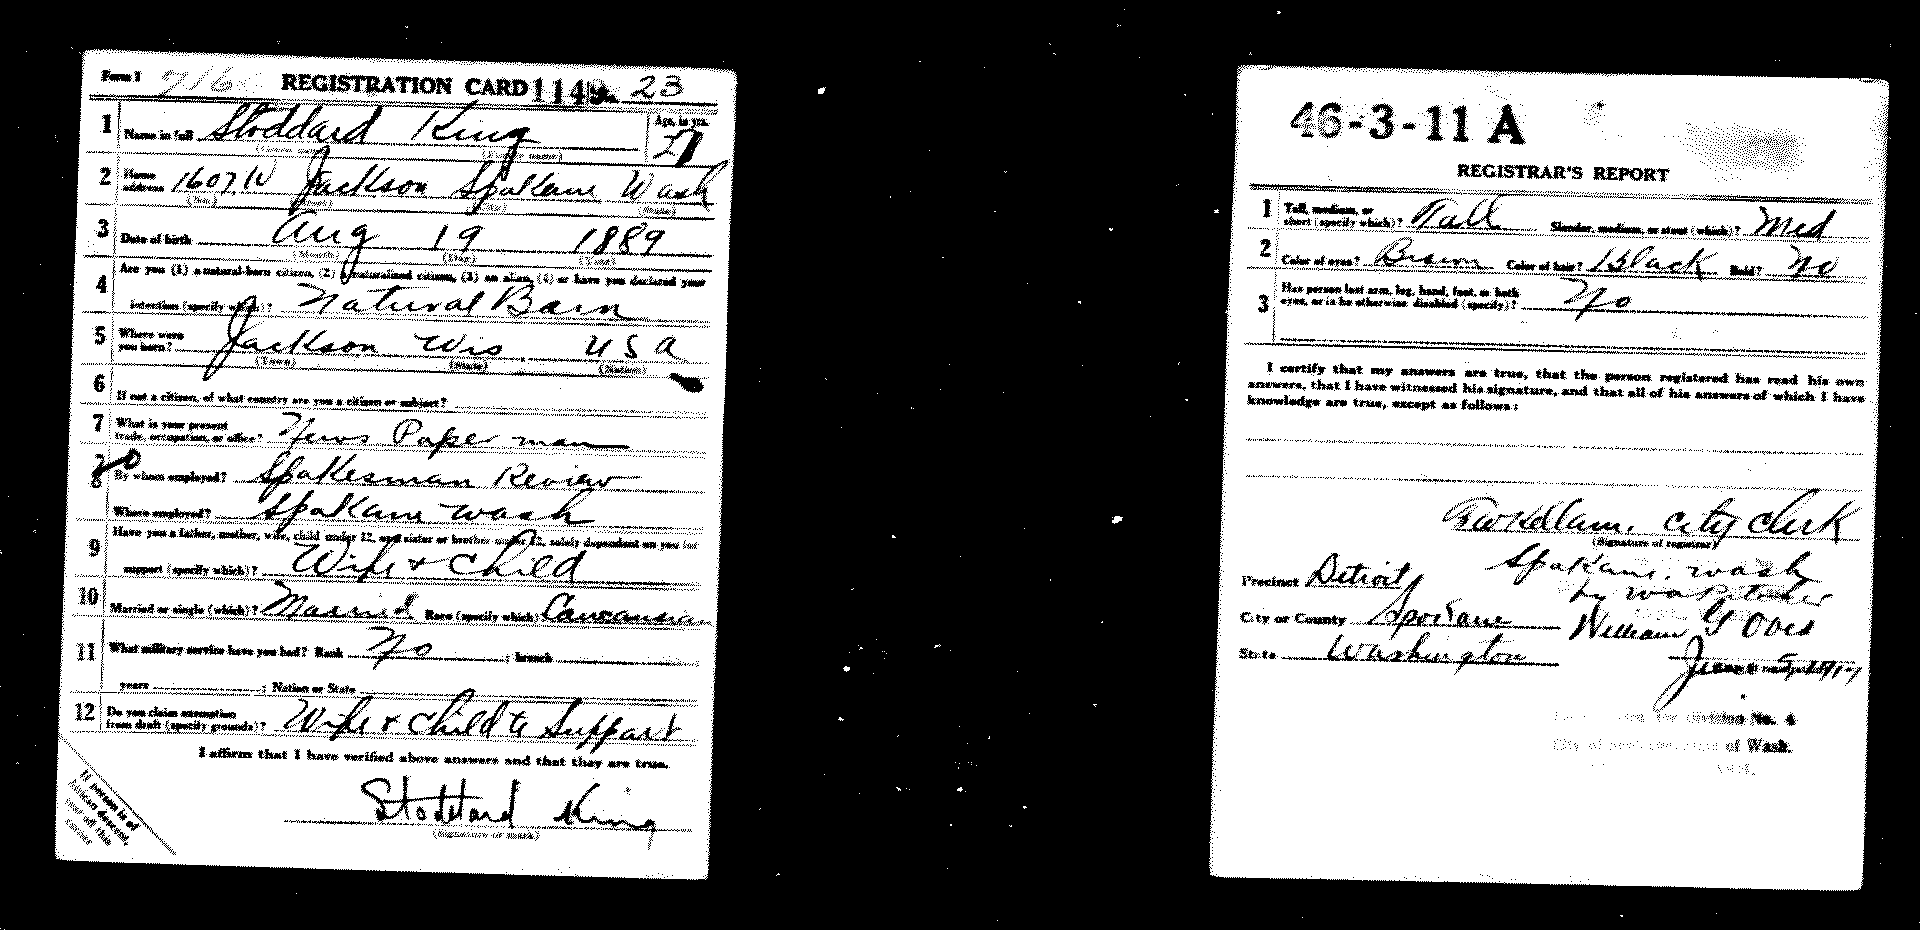 Form 1 716 REGISTRATION CARD 1149 23
1 Name in full Stoddard King Age, in yrs.
(Given name) (Family name) 27
2 Home address 1607 N Jackson Spokane Wash
(No.) (Street) (City) (State)
3 Date of birth Aug 19 1889
(Month) (Day) (Year)
4 Are you (1) a natural-born citizen, (2) a naturalized citizen, (3) an alien, (4) or have you declared your
intention (specify which)? Natural Born
5 Where were you born? Jackson Wis USA
(Town) (State) (Nation)
6 If not a citizen, of what country are you a citizen or subject?
7 What is your present trade, occupation, or office? News Paper man
8 By whom employed? Spokesman Review
Where employed? Spokane wash
9 Have you a father, mother, wife, child under 12, or a sister or brother under 12, solely dependent on you for
support (specify which)? Wife & Child
10 Married or single (which)? Married Race (specify which)? Caucausian
11 What military service have you had? Rank No ; branch
years ; Nation or State
12 Do you claim exemption from draft (specify grounds)? Wife & Child to Support
I affirm that I have verified above answers and that they are true.
Stoddard King
(Signature or mark)
If person is of African descent, tear off this corner
46-3-11 A
REGISTRAR'S REPORT
1 Tall, medium, or short (specify which)? Tall Slender, medium, or stout (which)? Med
2 Color of eyes? Brown Color of hair? Black Bald? No
3 Has person lost arm, leg, hand, foot, or both eyes, or is he otherwise disabled (specify)? No
I certify that my answers are true, that the person registered has read his own
answers, that I have witnessed his signature, and that all of his answers of which I have
knowledge are true, except as follows:
city clerk
(Signature of registrar)
Spokane. wash
Precinct Detroit by
City or County Spokane William G
State Washington June 5, 1917
division No. 4
City of of Wash.